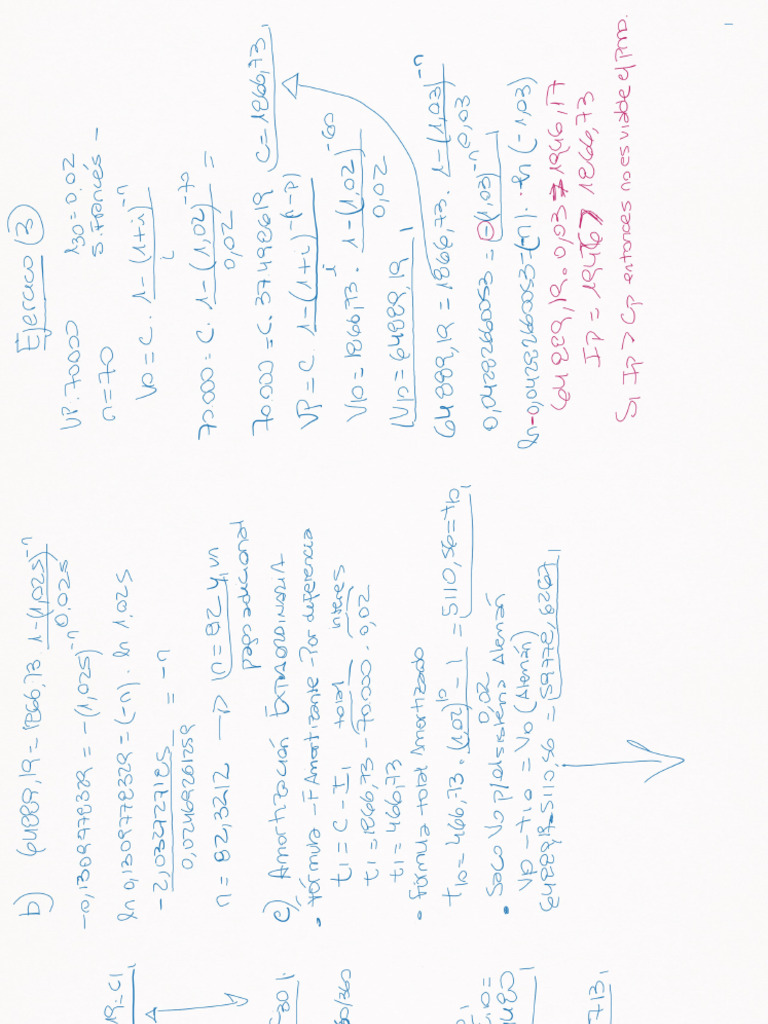 Ejercicio (3)
VP. 70000 i30=0.02
n=70 S. Francés -
Vo = C. 1-(1+i)^-n / i
70.000 = C. 1-(1,02)^-70 / 0,02 =
70.000 = C. 37.498619 C=1866,73
VP = C. 1-(1+i)^-(n-p) / i
V10 = 1866,73. 1-(1,02)^-60 / 0,02
V10 = 64889,19
64889,19 = 1866,73. 1-(1,03)^-n / 0,03
0,0428266053 = -(1,03)^-n
ln -0,0428266053=(-n). ln(-1,03)
64889,19. 0,03 = 1946,17
Ip = 1946,7 > 1866,73
Si Ip > Cp entonces no es viable el ptmo.
1
b) 64889,19 = 1866,73. 1-(1,025)^-n / 0,025
-0,1309778329 = -(1,025)^-n
ln 0,1309778329 = (-n). ln 1,025
-2,032727185 / 0,02469261259 = -n
n = 82,3212 → n=82 y un
pago adicional
c) Amortización EXTRAORDINARIA
• Fórmula - F Amortizante - Por diferencia
t1 = C - I1 total interes
t1 = 1866,73 - 70000. 0,02
t1 = 466,73
• Fórmula total Amortizado
t10 = 466,73. (1,02)^10 - 1 / 0,02 = 5110,56 = t10
• Saco Vo p/el sistema Alemán
VP - t10 = Vo (Alemán)
64889,19 - 5110,56 = 59778,6267
19=C1
30/360
7131